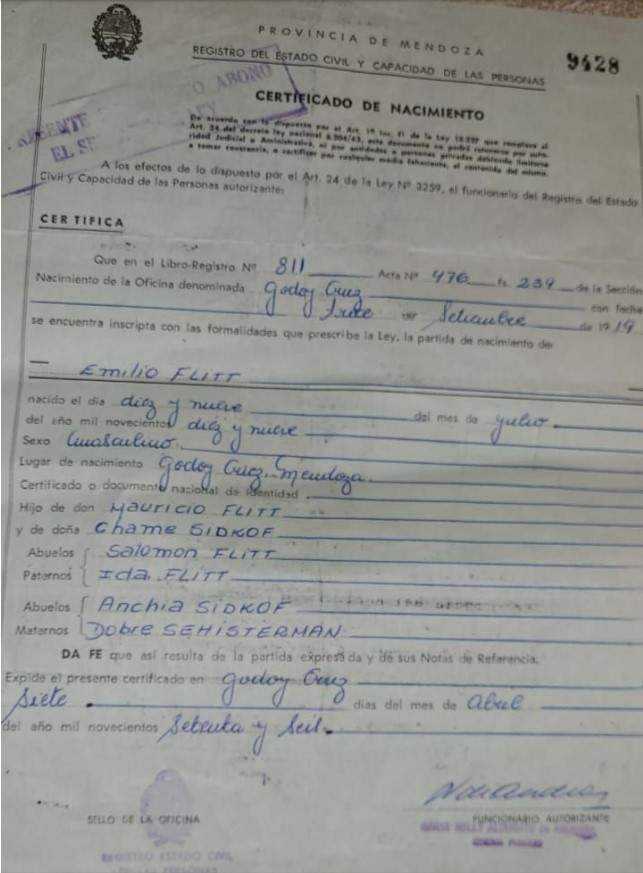 PROVINCIA DE MENDOZA
REGISTRO DEL ESTADO CIVIL Y CAPACIDAD DE LAS PERSONAS
9428
O ABONO
LEY
EL SE
CERTIFICADO DE NACIMIENTO
De acuerdo con lo dispuesto por el Art. 1º Inc. f) de la Ley que
Art. 24 del decreto ley nacional este documento no podrá retenerse por auto-
ridad Judicial o Administrativa, ni por entidades o personas privadas debiendo limitarse
a tomar constancia, o certificar por cualquier medio fehaciente, el contenido del mismo.
A los efectos de lo dispuesto por el Art. 24 de la Ley Nº 3259, el funcionario del Registro del Estado
Civil y Capacidad de las Personas autorizante:
CERTIFICA
Que en el Libro-Registro Nº 811 Acta Nº 476 fs. 239 de la Sección
Nacimiento de la Oficina denominada Godoy Cruz con fecha
Trece de Setiembre de 1919
se encuentra inscripta con las formalidades que prescribe la Ley, la partida de nacimiento de:
Emilio FLITT
nacido el día diez y nueve del mes de Julio
del año mil novecientos diez y nueve
Sexo Masculino
Lugar de nacimiento Godoy Cruz. Mendoza
Certificado o documento nacional de identidad
Hijo de don Mauricio FLITT
y de doña Chame SIDKOF
Abuelos Salomon FLITT
Paternos Ida FLITT
Abuelos Anchia SIDKOF
Maternos Dobre SEHISTERMAN
DA FE que así resulta de la partida expresada y de sus Notas de Referencia.
Expide el presente certificado en Godoy Cruz
Siete días del mes de Abril
del año mil novecientos Setenta y Seis
SELLO DE LA OFICINA
FUNCIONARIO AUTORIZANTE
REGISTRO ESTADO CIVIL